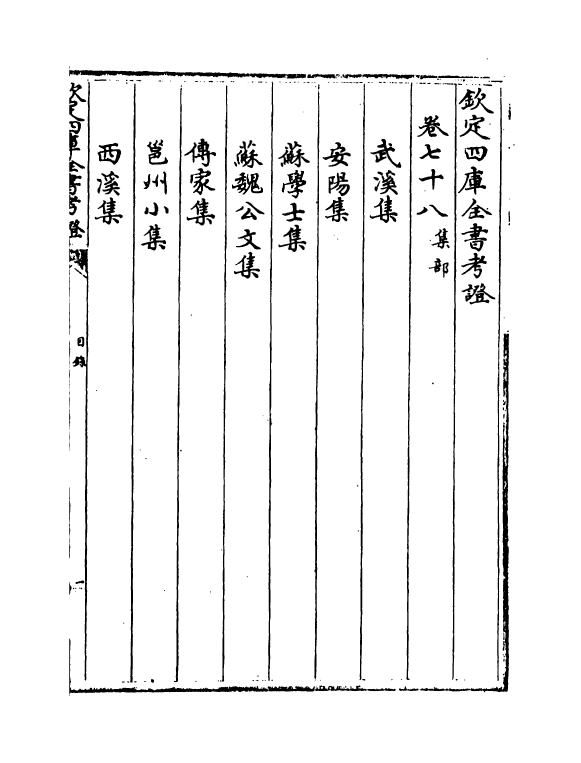 欽定四庫全書考證
卷七十八集部
武溪集
安陽集
蘇學士集
蘇魏公文集
傳家集
邕州小集
西溪集
欽定四庫全書考證
目錄
一